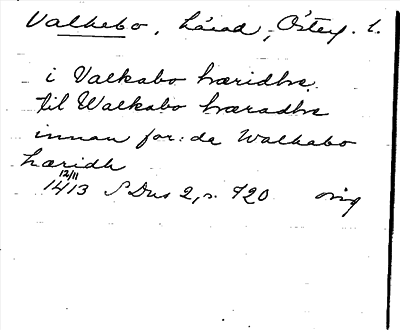 Valkebo, härad, Österg. l.
i Valkabo hæridhe
til Walkabo hæradhe
innan for:da Walkabo
hæridh
12/11
1413 SDns 2, s. 720 orig